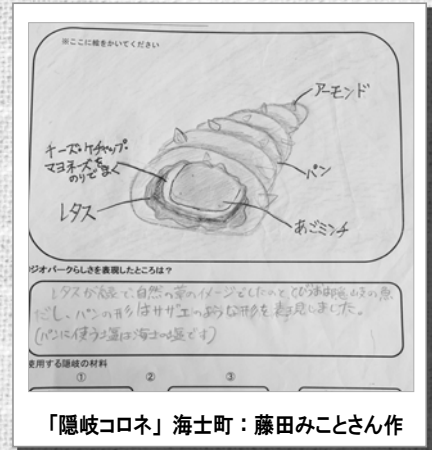 ※ここに絵をかいてください
アーモンド
チーズ・ケチャップ・
マヨネーズを
のりでまく
パン
レタス
あごミンチ
ジオパークらしさを表現したところは?
レタスが緑で、自然の草のイメージでしたのと、とびうおは隠岐の魚
だし、パンの形はサザエのような形を表現しました。
(パンに使う塩は海士の塩です)
使用する隠岐の材料
① ② ③
「隠岐コロネ」海士町:藤田みことさん作